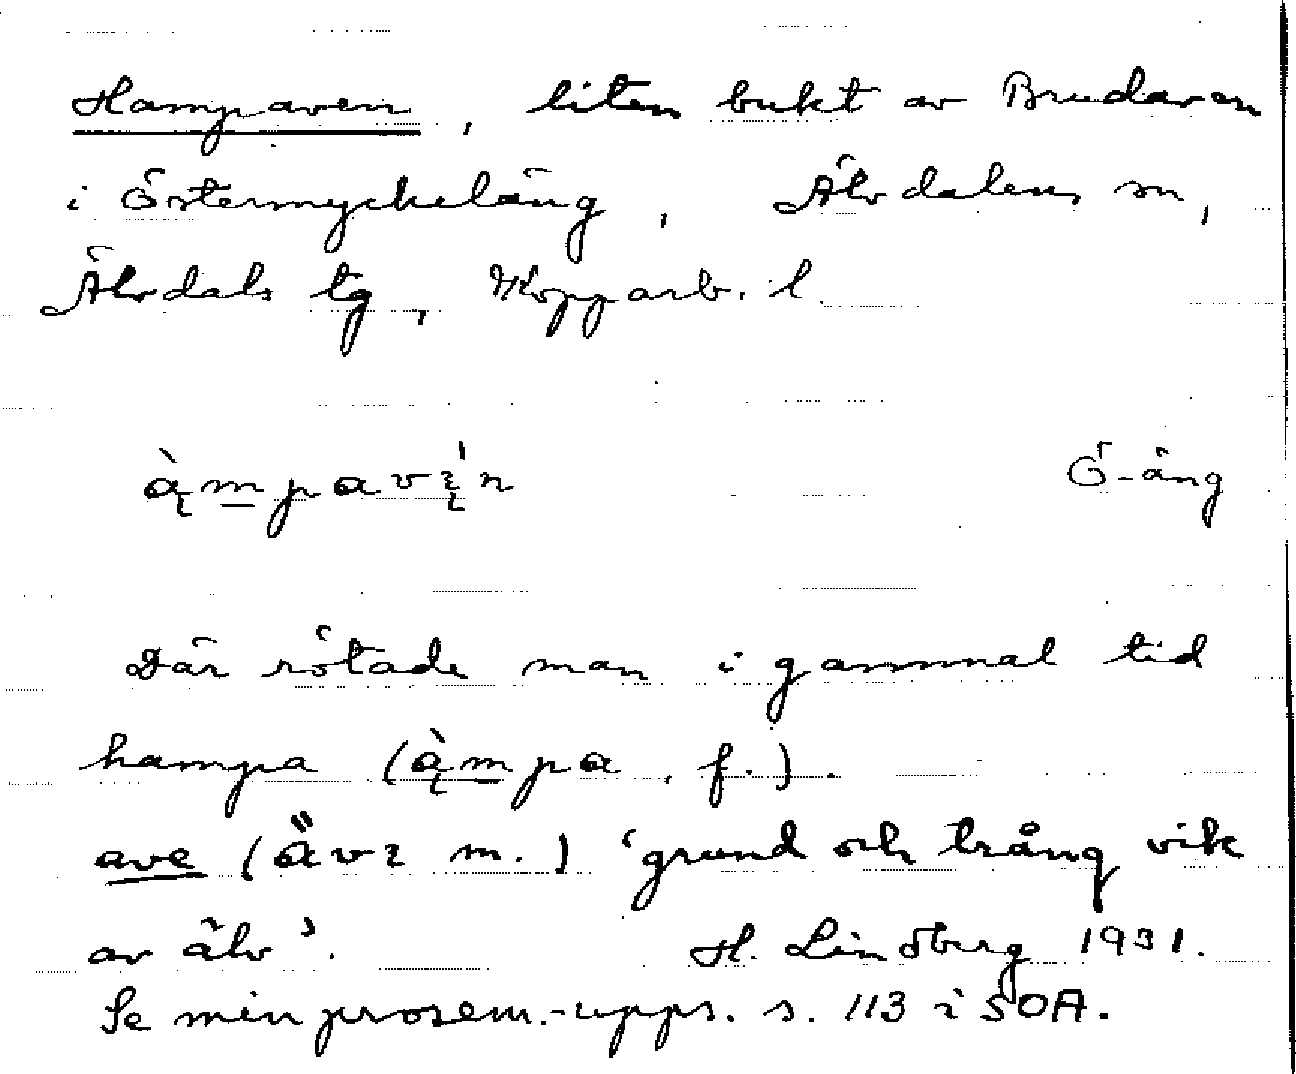 Hampaven, liten bukt av Brudaven
i Östermyckeläng, Älvdalens sn,
Älvdals tg, Kopparb. l.
Ö-äng
Där rötade man i gammal tid
hampa (ą̀mpa, f.).
ave (     m.) 'grund och trång vik
av älv'. H. Lindberg 1931.
Se min prosem.-upps. s. 113 i SOA.